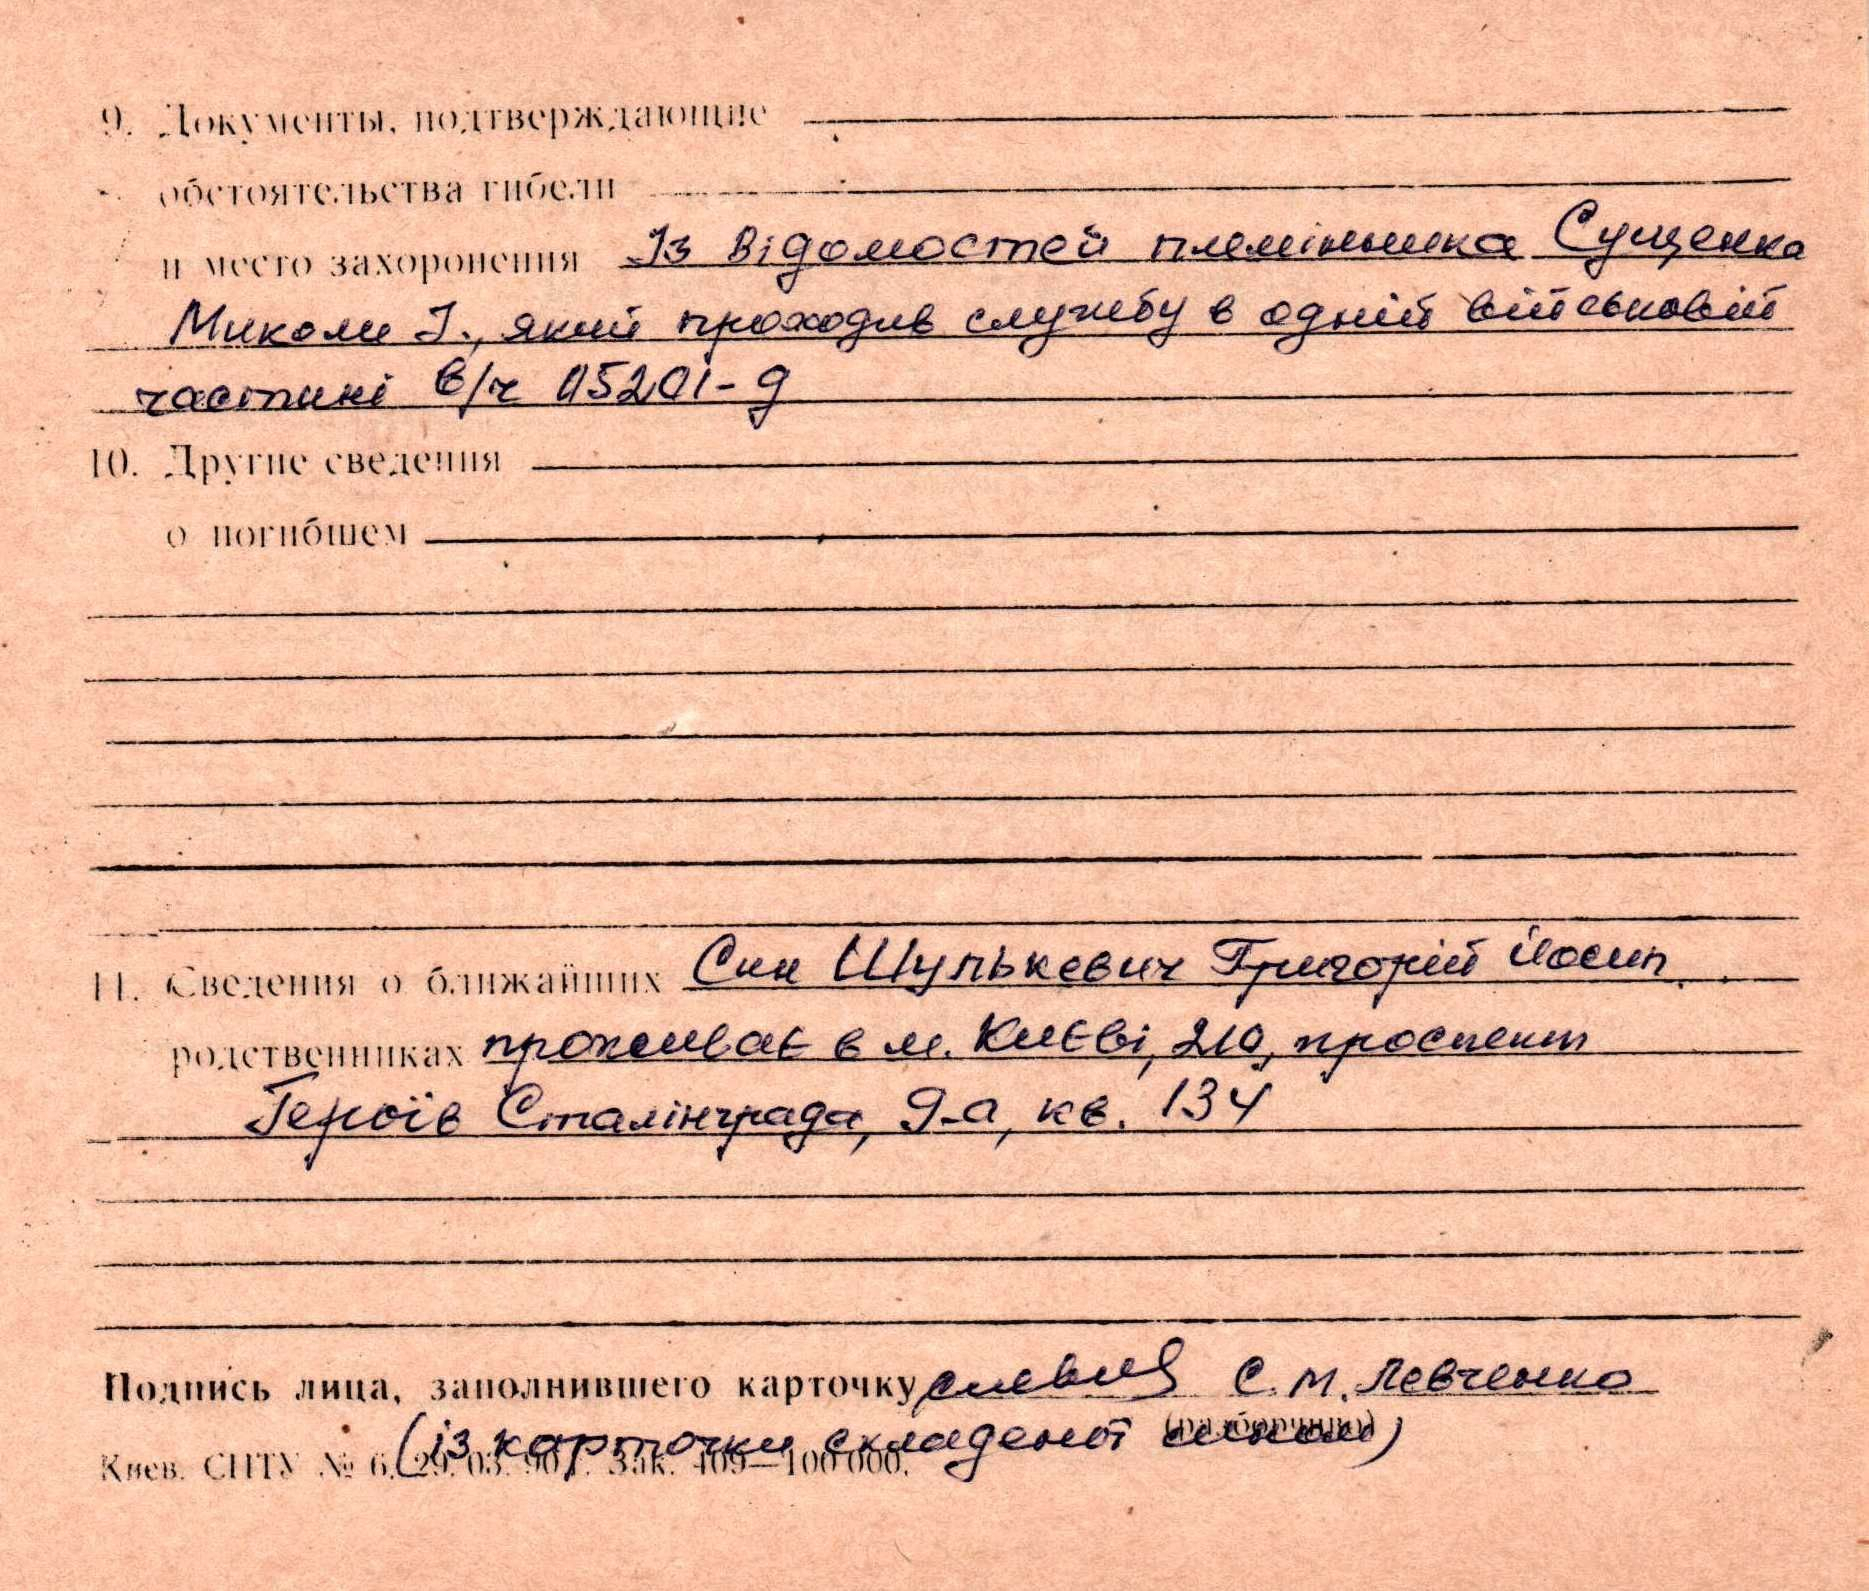 9. Документы, подтверждающие
обстоятельства гибели
и место захоронения Із відомостей племінника Сущенка
Миколи І., який проходив службу в одній військовій
частині в/ч 05201-д
10. Другие сведения
о погибшем
11. Сведения о ближайших Син Шулькевич Григорій Йосип.
родственниках проживає в м. Києві, 210, проспект
Героїв Сталінграда, 9-а, кв. 134
Подпись лица, заполнившего карточку С. М. Левченко
(разборчиво)
(із карточки складеної сином)
Киев. СПТУ № 6. 29. 03. 90 г. Зак. 409—100 000.